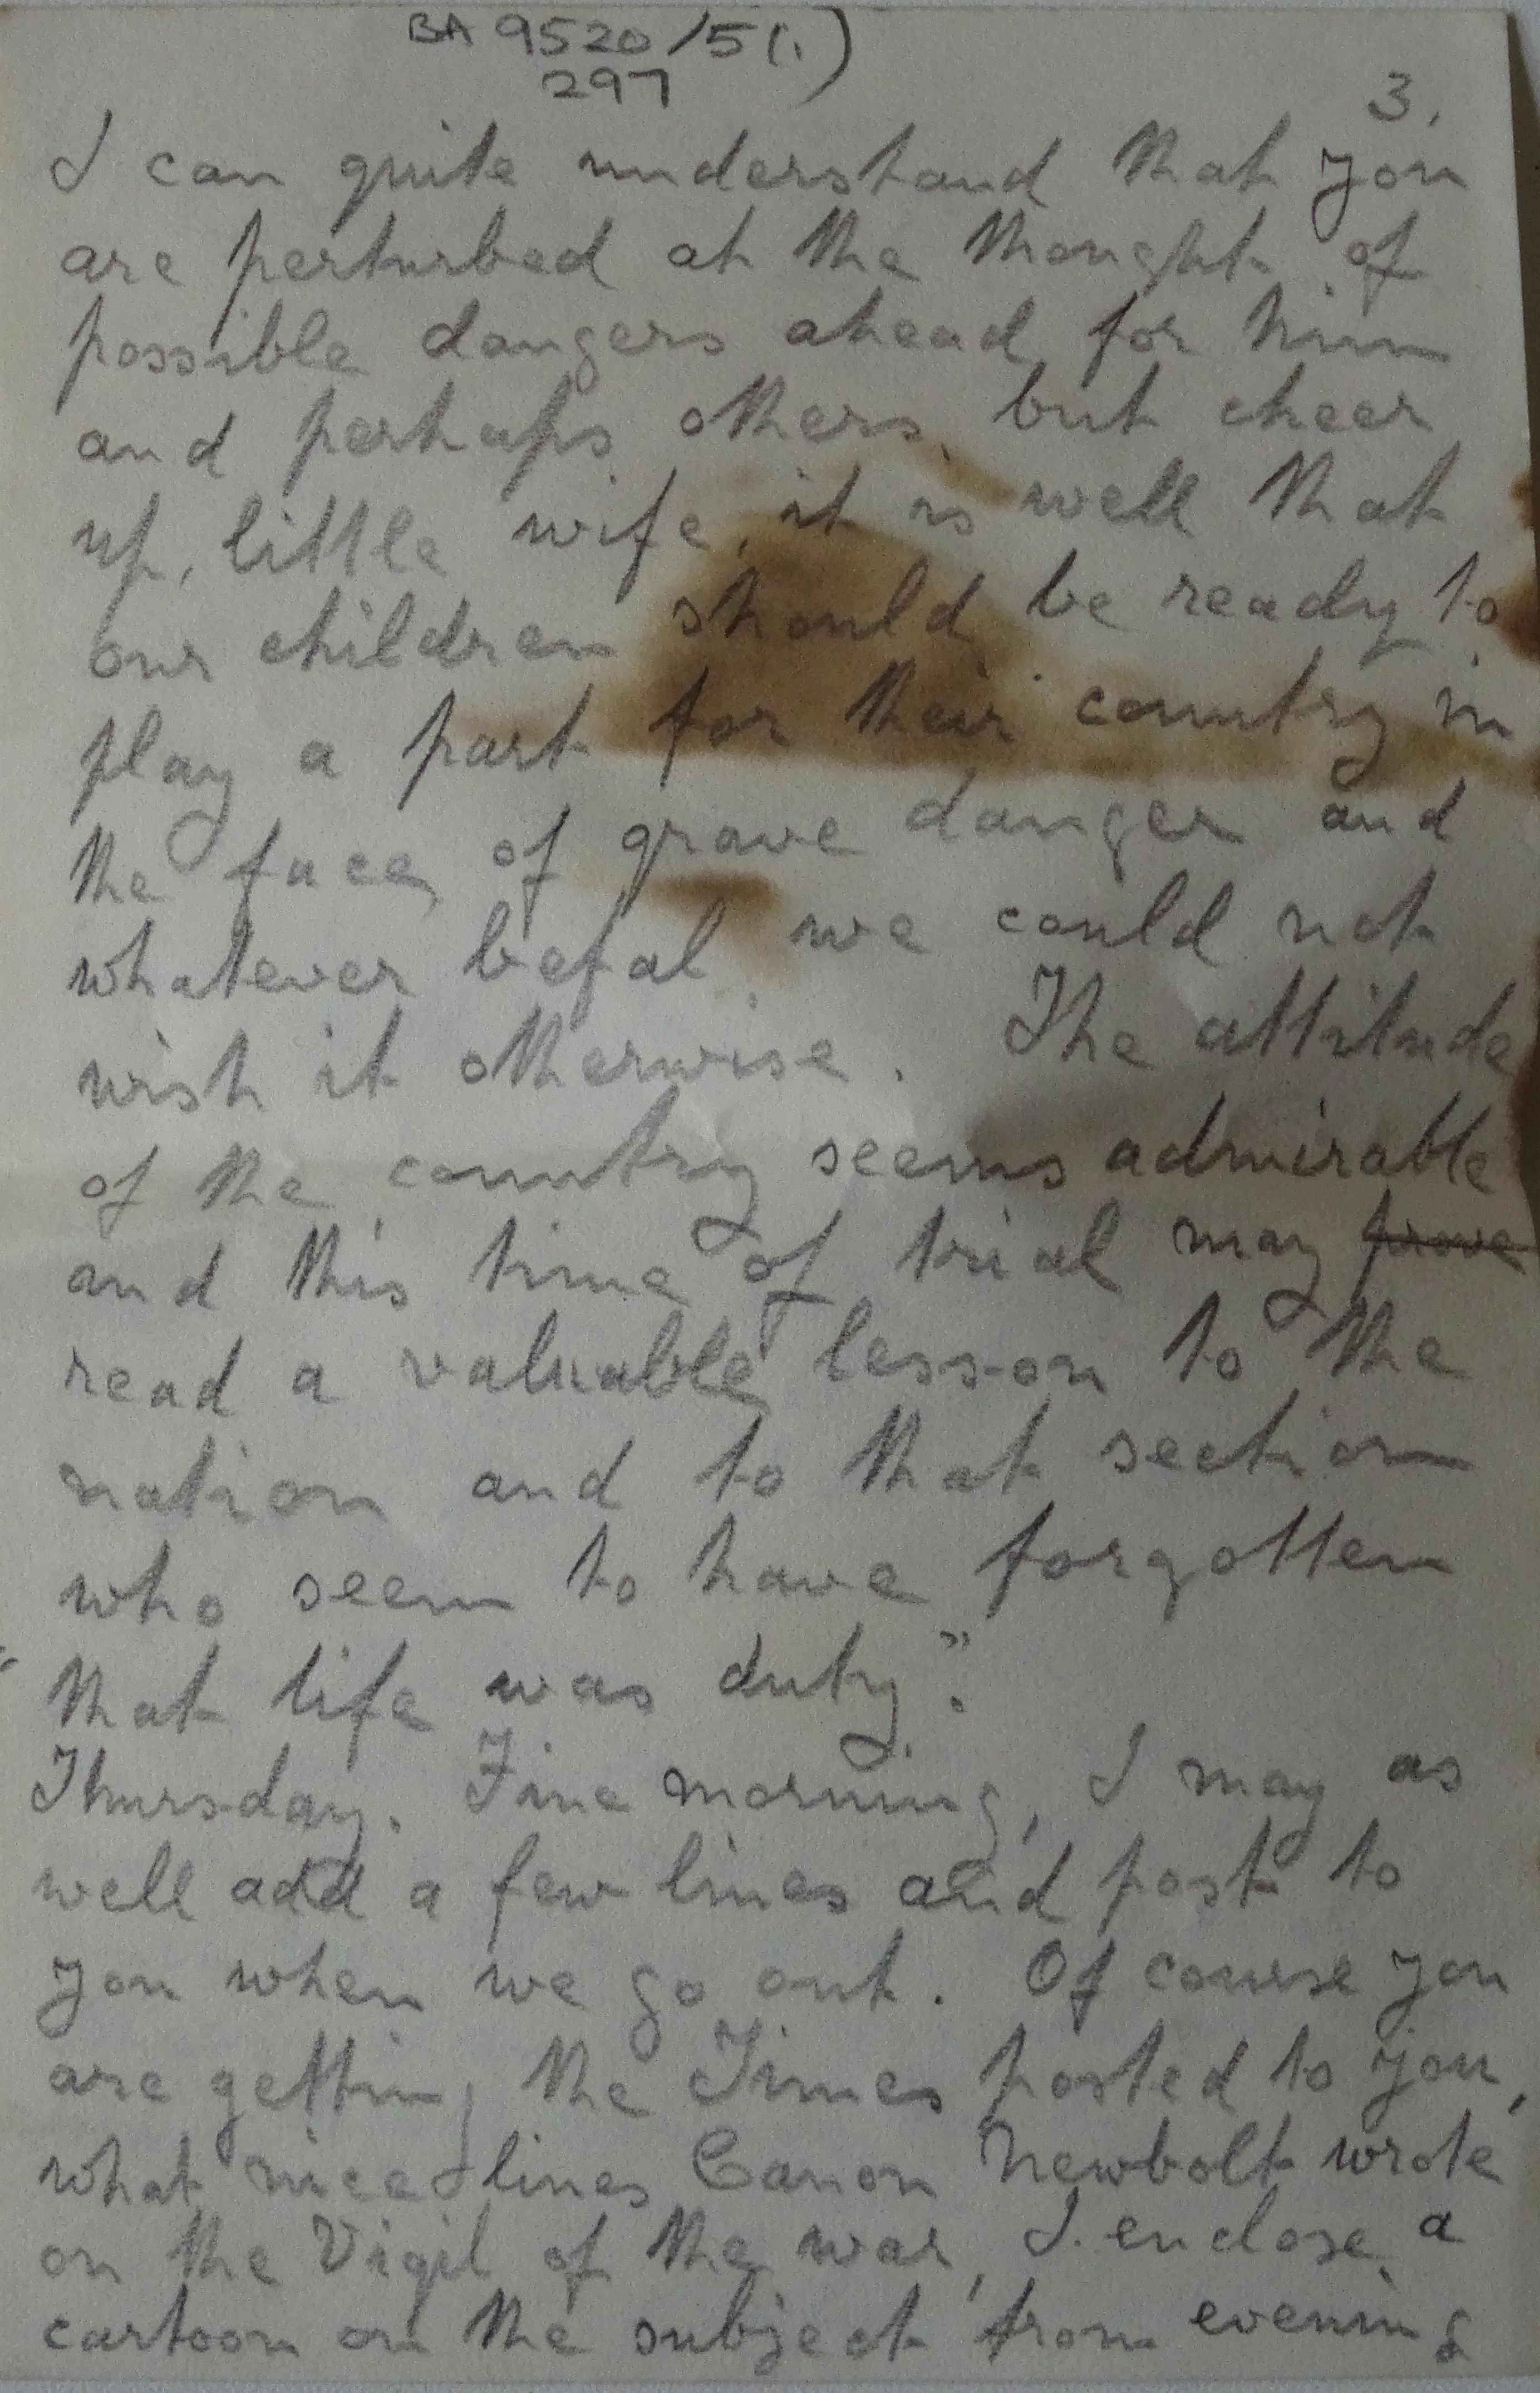 BA 9520/5(1)
297
3.
I can quite understand that you
are perturbed at the thought of
possible dangers ahead for him
and perhaps others, but cheer
up, little wife, it is well that
our children should be ready to
play a part for their country in
the face of grave danger and
whatever befal we could not
wish it otherwise. The attitude
of the country seems admirable
and this time of trial may prove
read a valuable lesson to the
nation and to that section
who seem to have forgotten
"that life was duty".
Thursday. Fine morning, I may as
well add a few lines and post to
you when we go out. Of course you
are getting the Times posted to you,
what nice lines Canon Newbolt wrote
on the Vigil of the war, I enclose a
cartoon on the subject from evening